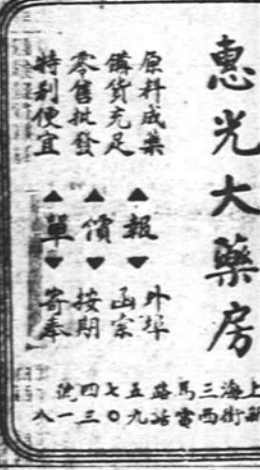 惠光大藥房
原料成藥
備貨充足
零售批發
特別便宜
報價單
外埠
函索
按期
寄奉
上海三馬路五七四號
街西電話九〇三一八